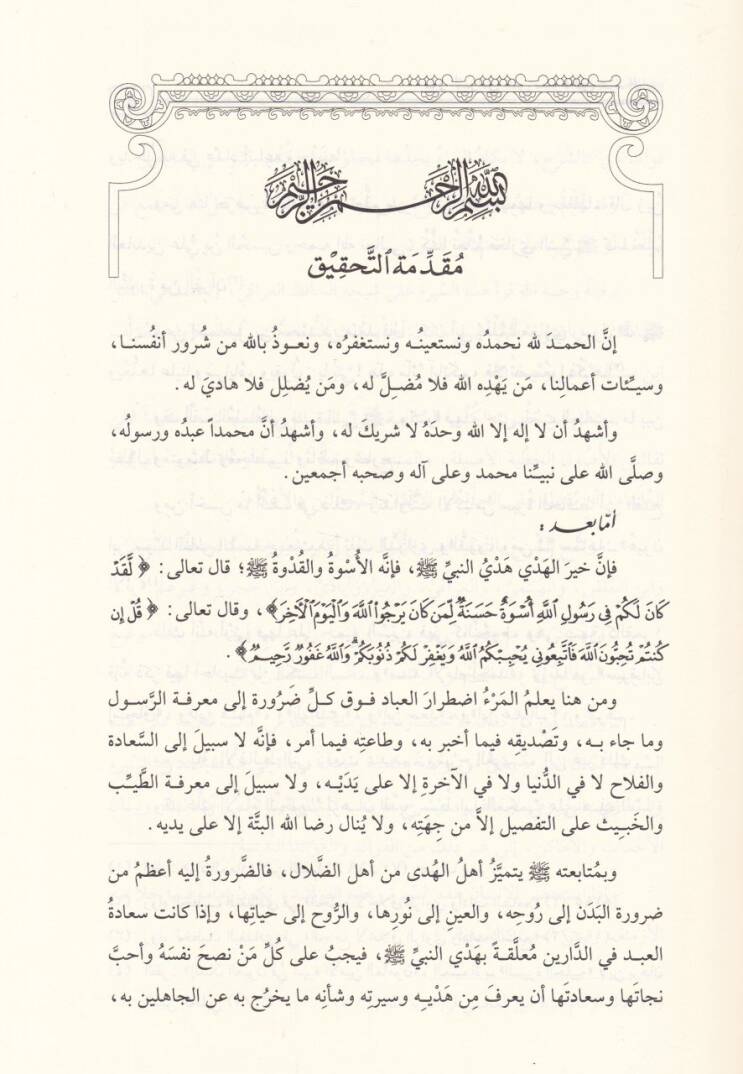 بسم الله الرحمن الرحيم
مُقَدِّمَة التَّحقِيْق
إنَّ الحمـدَ لله نحمدُه ونستعينُـه ونستغفرُه، ونعـوذُ بالله من شُرور أنفُسنـا،
وسيِّئات أعمالِنا، مَن يَهْدِه الله فلا مُضـلَّ له، ومَن يُضلِل فلا هاديَ له.
وأشهدُ أن لا إله إلا الله وحدَهُ لا شريكَ له، وأشهدُ أنَّ محمداً عبدُه ورسولُه،
وصلَّى الله على نبيِّنا محمد وعلى آله وصحبه أجمعين.
أمّا بعد:
فإنَّ خيرَ الهَدْي هَدْيُ النبيِّ ﷺ، فإنَّه الأُسْوةُ والقُدْوةُ ﷺ؛ قال تعالى: ﴿لَّقَدْ
كَانَ لَكُمْ فِى رَسُولِ ٱللَّهِ أُسْوَةٌ حَسَنَةٌ لِّمَن كَانَ يَرْجُوا۟ ٱللَّهَ وَٱلْيَوْمَ ٱلْـَٔاخِرَ﴾، وقال تعالى: ﴿قُلْ إِن
كُنتُمْ تُحِبُّونَ ٱللَّهَ فَٱتَّبِعُونِى يُحْبِبْكُمُ ٱللَّهُ وَيَغْفِرْ لَكُمْ ذُنُوبَكُمْ ۗ وَٱللَّهُ غَفُورٌ رَّحِيمٌ﴾.
ومن هنا يعلمُ المَرْءُ اضطرارَ العباد فـوق كـلِّ ضَرُورة إلى معرفـة الرَّسـول
وما جاء بـه، وتَصْديقه فيما أخبر به، وطاعتِه فيما أمر، فإنَّه لا سبيلَ إلى السَّعادة
والفلاح لا في الدُّنيا ولا في الآخرةِ إلا على يَدَيْـه، ولا سبيـلَ إلى معرفـة الطَّيـِّب
والخَبـيث على التفصيل إلاَّ من جِهَتِه، ولا يُنال رضا الله البتَّة إلا على يديه.
وبمُتابعته ﷺ يتميَّزُ أهلُ الهُدى من أهل الضَّلال، فالضَّرورةُ إليه أعظمُ من
ضرورة البَدَن إلى رُوحِه، والعينِ إلى نُورِها، والرُّوح إلى حياتِها، وإذا كانت سعادةُ
العبـد في الدَّارين مُعلَّقـةً بهَدْي النبيِّ ﷺ، فيجبُ على كُلِّ مَنْ نصحَ نفسَهُ وأحبَّ
نجاتَها وسعادتَها أن يعرفَ مِن هَدْيـِه وسيرتِه وشأنِه ما يخرُج به عن الجاهلين به،